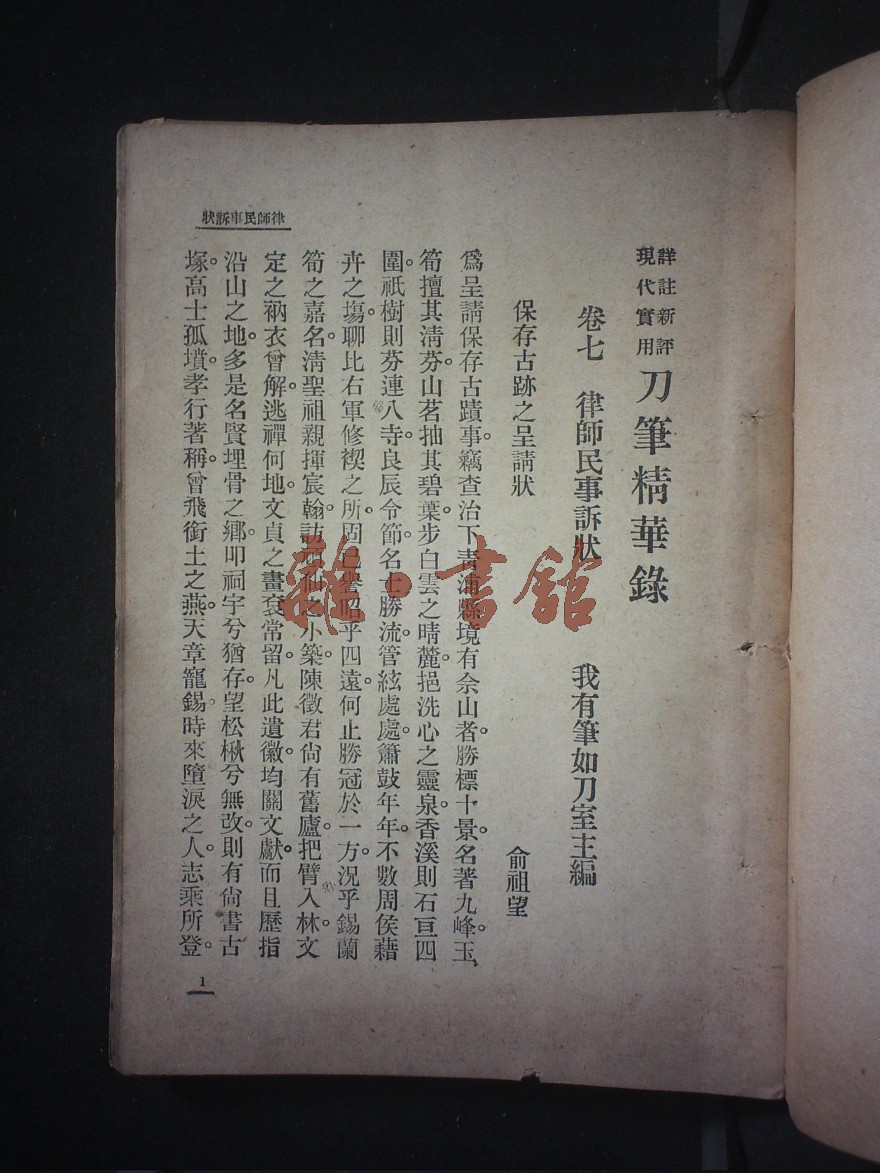 詳註新評
現代實用
刀筆精華錄
卷七　律師民事訴狀　我有筆如刀室主編
保存古跡之呈請狀　俞祖望
爲呈請保存古蹟事。竊查治下青浦縣境有佘山者。勝標十景。名著九峰。玉
筍擅其淸芬。山茗抽其碧葉。步白雲之晴麓。挹洗心之靈泉。香溪則石亘四
圍。祇樹則芬連八寺。良辰令節。名士勝流。管絃處處。簫鼓年年。不數周侯藉
卉之塲。聊比右軍修禊之所。固已譽昭乎四遠。何止勝冠於一方。況乎錫蘭
筍之嘉名。淸聖祖親揮宸翰。訪神仙之小築。陳徵君尙有舊廬。把臂入林。文
定之衲衣曾解。逃禪何地。文貞之畫袞常留。凡此遺徽。均關文獻。而且歷指
沿山之地。多是名賢埋骨之鄉。叩祠宇兮猶存。望松楸兮無改。則有尙書古
塚。高士孤墳。孝行著稱。曾飛銜土之燕。天章寵錫。時來墮淚之人。志乘所登。
律師民事訴狀
1
雜·書館